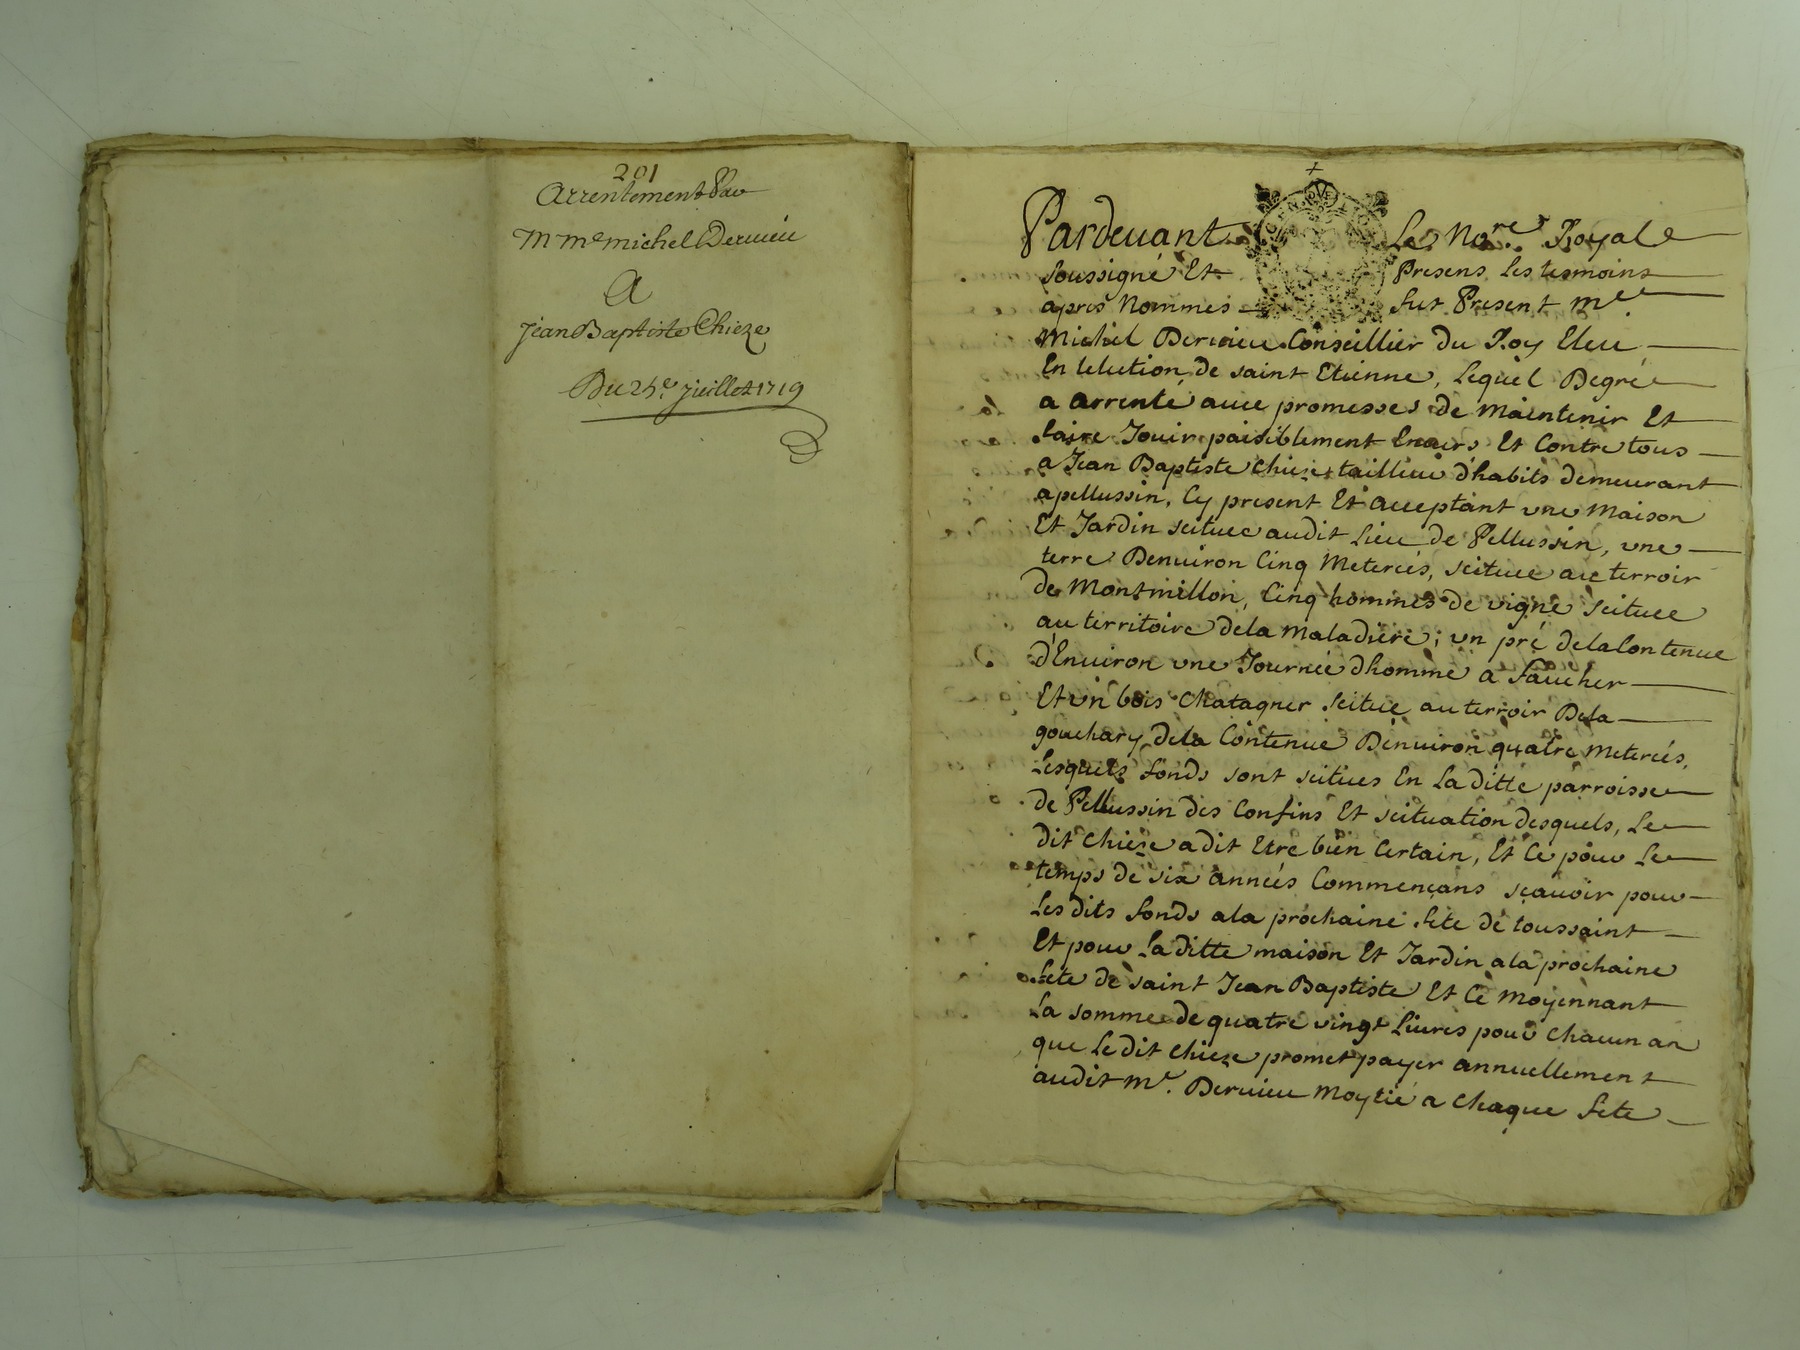 201
Arrentement Par
Mr me michel Dervieu
A
Jean Baptiste Chieze
Du 25e juillet 1719
Pardevant Le Nore Royale
soussigné Et Presens Les tesmoins
apres Nommés fut Present me
Michel Dervieu Conseillier Du Roy Eleu
En lelection de saint Etienne, Lequel Degré
a arrenté avec promesses de maintenir Et
faire Jouir paisiblement Envers Et Contre tous
a Jean Baptiste chieze tailleur d'habits demeurant
apellussin, Cy present Et acceptant une Maison
Et Jardin scituee audit Lieu de Pellussin, une
terre Denviron Cinq Meterées, scituee au terroir
de Montmillon, Cinq hommes de vigne scituee
au territoire de la Maladiere; un pré de la Contenue
d'Environ une Journée d'homme a faucher
Et un bois Chatagner scitue au terroir De la
gouchary de la Contenue Denviron quatre Meterées,
Lesquels fonds sont scitues En La ditte parroisse
de Pellussin des Confins Et scituation desquels, Le
dit Chieze a dit Etre bien Certain, Et Ce pour Le
temps de six années Commençans sçavoir pour
Les dits fonds a la prochaine fete de toussaint
Et pour La ditte maison Et Jardin a la prochaine
fete de saint Jean Baptiste Et Ce Moyennant
La somme de quatre vingt Livres pour chacun an
que Le dit Chieze promet payer annuellement
audit Me. Dervieu Moytié a Chaque fete